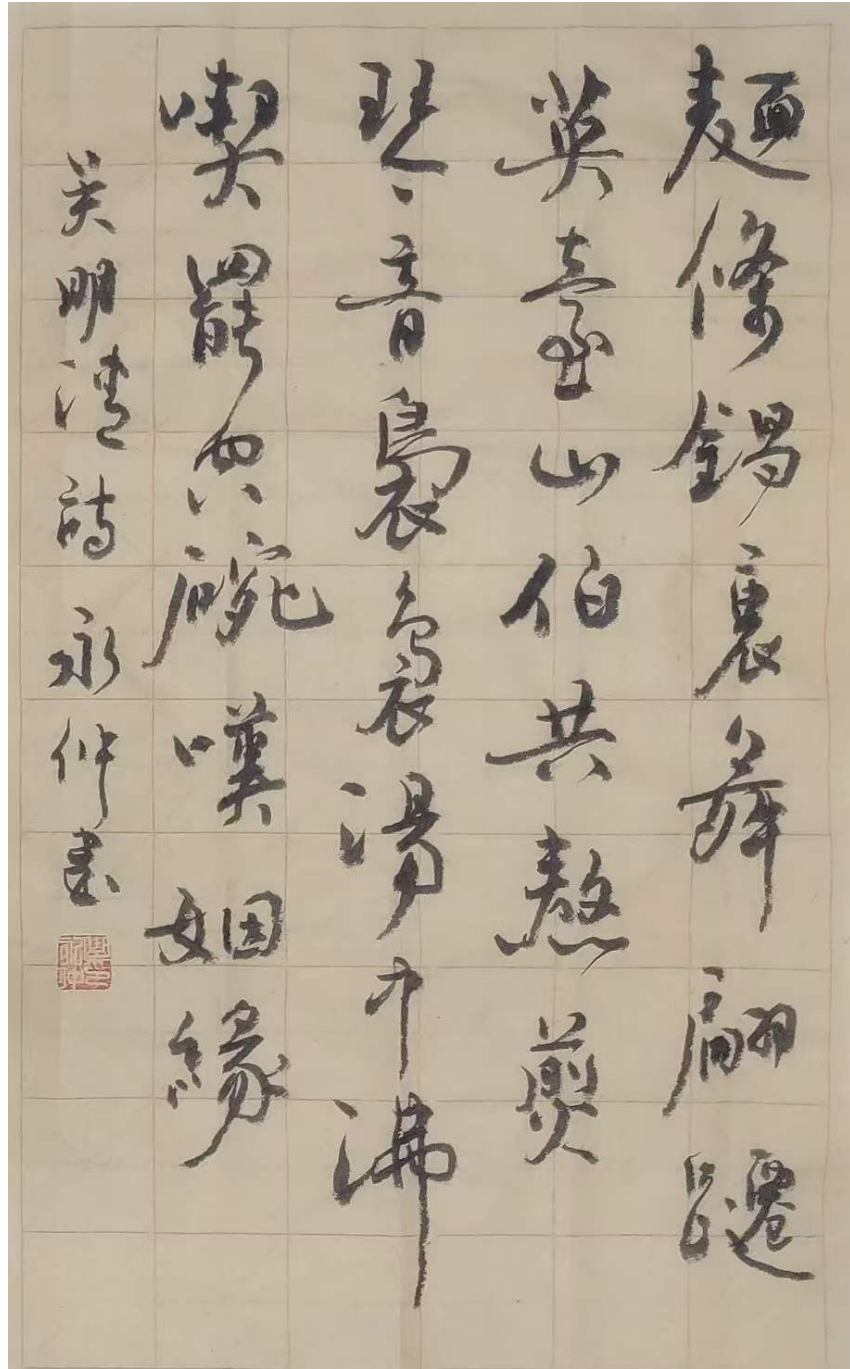 麵條鍋裏舞翩躚
英臺山伯共熬煎
琴音裊裊湯中沸
喫罷空碗嘆姻緣
吴明清詩 永仲書